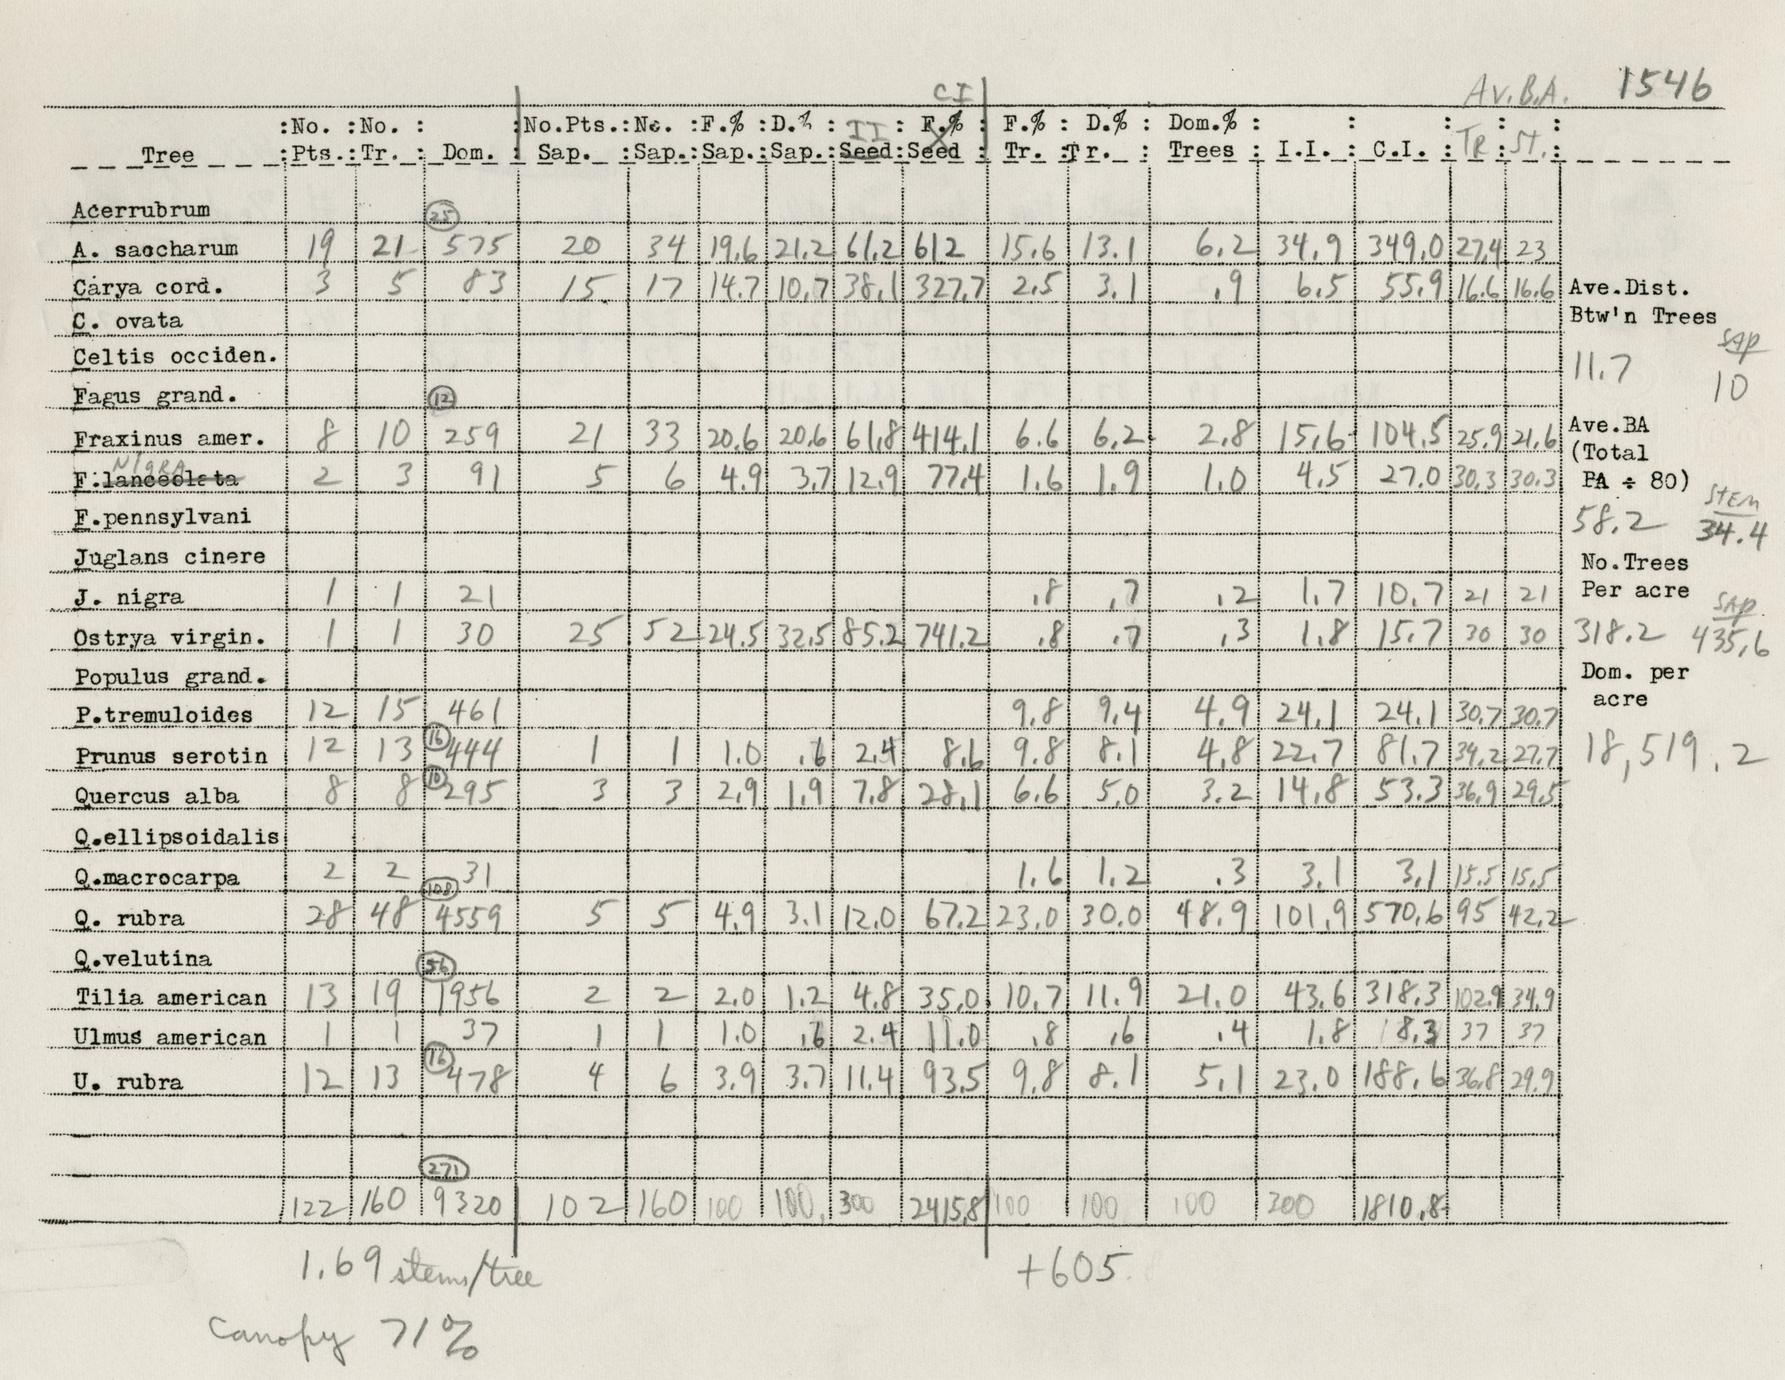 Av.B.A. 1546
CI
:No. :No. : :No.Pts.:No. :F.% :D.% : II : F.% : F.% : D.% : Dom.% : : : : :
Tree :Pts.:Tr. : Dom. : Sap. :Sap.:Sap.:Sap.:Seed:Seed : Tr. :Tr. : Trees : I.I. : C.I. : TR : ST. :
Acerrubrum (25)
A. saccharum 19 21 575 20 34 19.6 21.2 61.2 612 15.6 13.1 6.2 34.9 349.0 27.4 23
Carya cord. 3 5 83 15 17 14.7 10.7 38.1 327.7 2.5 3.1 .9 6.5 55.9 16.6 16.6 Ave.Dist.
C. ovata Btw'n Trees
Celtis occiden. 11.7 SAP
Fagus grand. (12) 10
Fraxinus amer. 8 10 259 21 33 20.6 20.6 61.8 414.1 6.6 6.2 2.8 15.6 104.5 25.9 21.6 Ave.BA
NIGRA (Total
F.lanceolata 2 3 91 5 6 4.9 3.7 12.9 77.4 1.6 1.9 1.0 4.5 27.0 30.3 30.3 BA ÷ 80)
F.pennsylvani 58.2 STEM 34.4
Juglans cinere No.Trees
J. nigra 1 1 21 .8 .7 .2 1.7 10.7 21 21 Per acre SAP
Ostrya virgin. 1 1 30 25 52 24.5 32.5 85.2 741.2 .8 .7 .3 1.8 15.7 30 30 318.2 435.6
Populus grand. Dom. per
P.tremuloides 12 15 461 9.8 9.4 4.9 24.1 24.1 30.7 30.7 acre
Prunus serotin 12 13 (16) 444 1 1 1.0 .6 2.4 8.6 9.8 8.1 4.8 22.7 81.7 34.2 27.7 18,519.2
Quercus alba 8 8 (10) 295 3 3 2.9 1.9 7.8 28.1 6.6 5.0 3.2 14.8 53.3 36.9 29.5
Q.ellipsoidalis
Q.macrocarpa 2 2 31 1.6 1.2 .3 3.1 3.1 15.5 15.5
Q. rubra 28 48 (108) 4559 5 5 4.9 3.1 12.0 67.2 23.0 30.0 48.9 101.9 570.6 95 42.2
Q.velutina (56)
Tilia american 13 19 1956 2 2 2.0 1.2 4.8 35.0 10.7 11.9 21.0 43.6 318.3 102.9 34.9
Ulmus american 1 1 37 1 1 1.0 .6 2.4 11.0 .8 .6 .4 1.8 8.3 37 37
U. rubra 12 13 (16) 478 4 6 3.9 3.7 11.4 93.5 9.8 8.1 5.1 23.0 188.6 36.8 29.9
(271)
122 160 9320 102 160 100 100 300 2415.8 100 100 100 300 1810.8
1.69 stems/tree +605
Canopy 71%